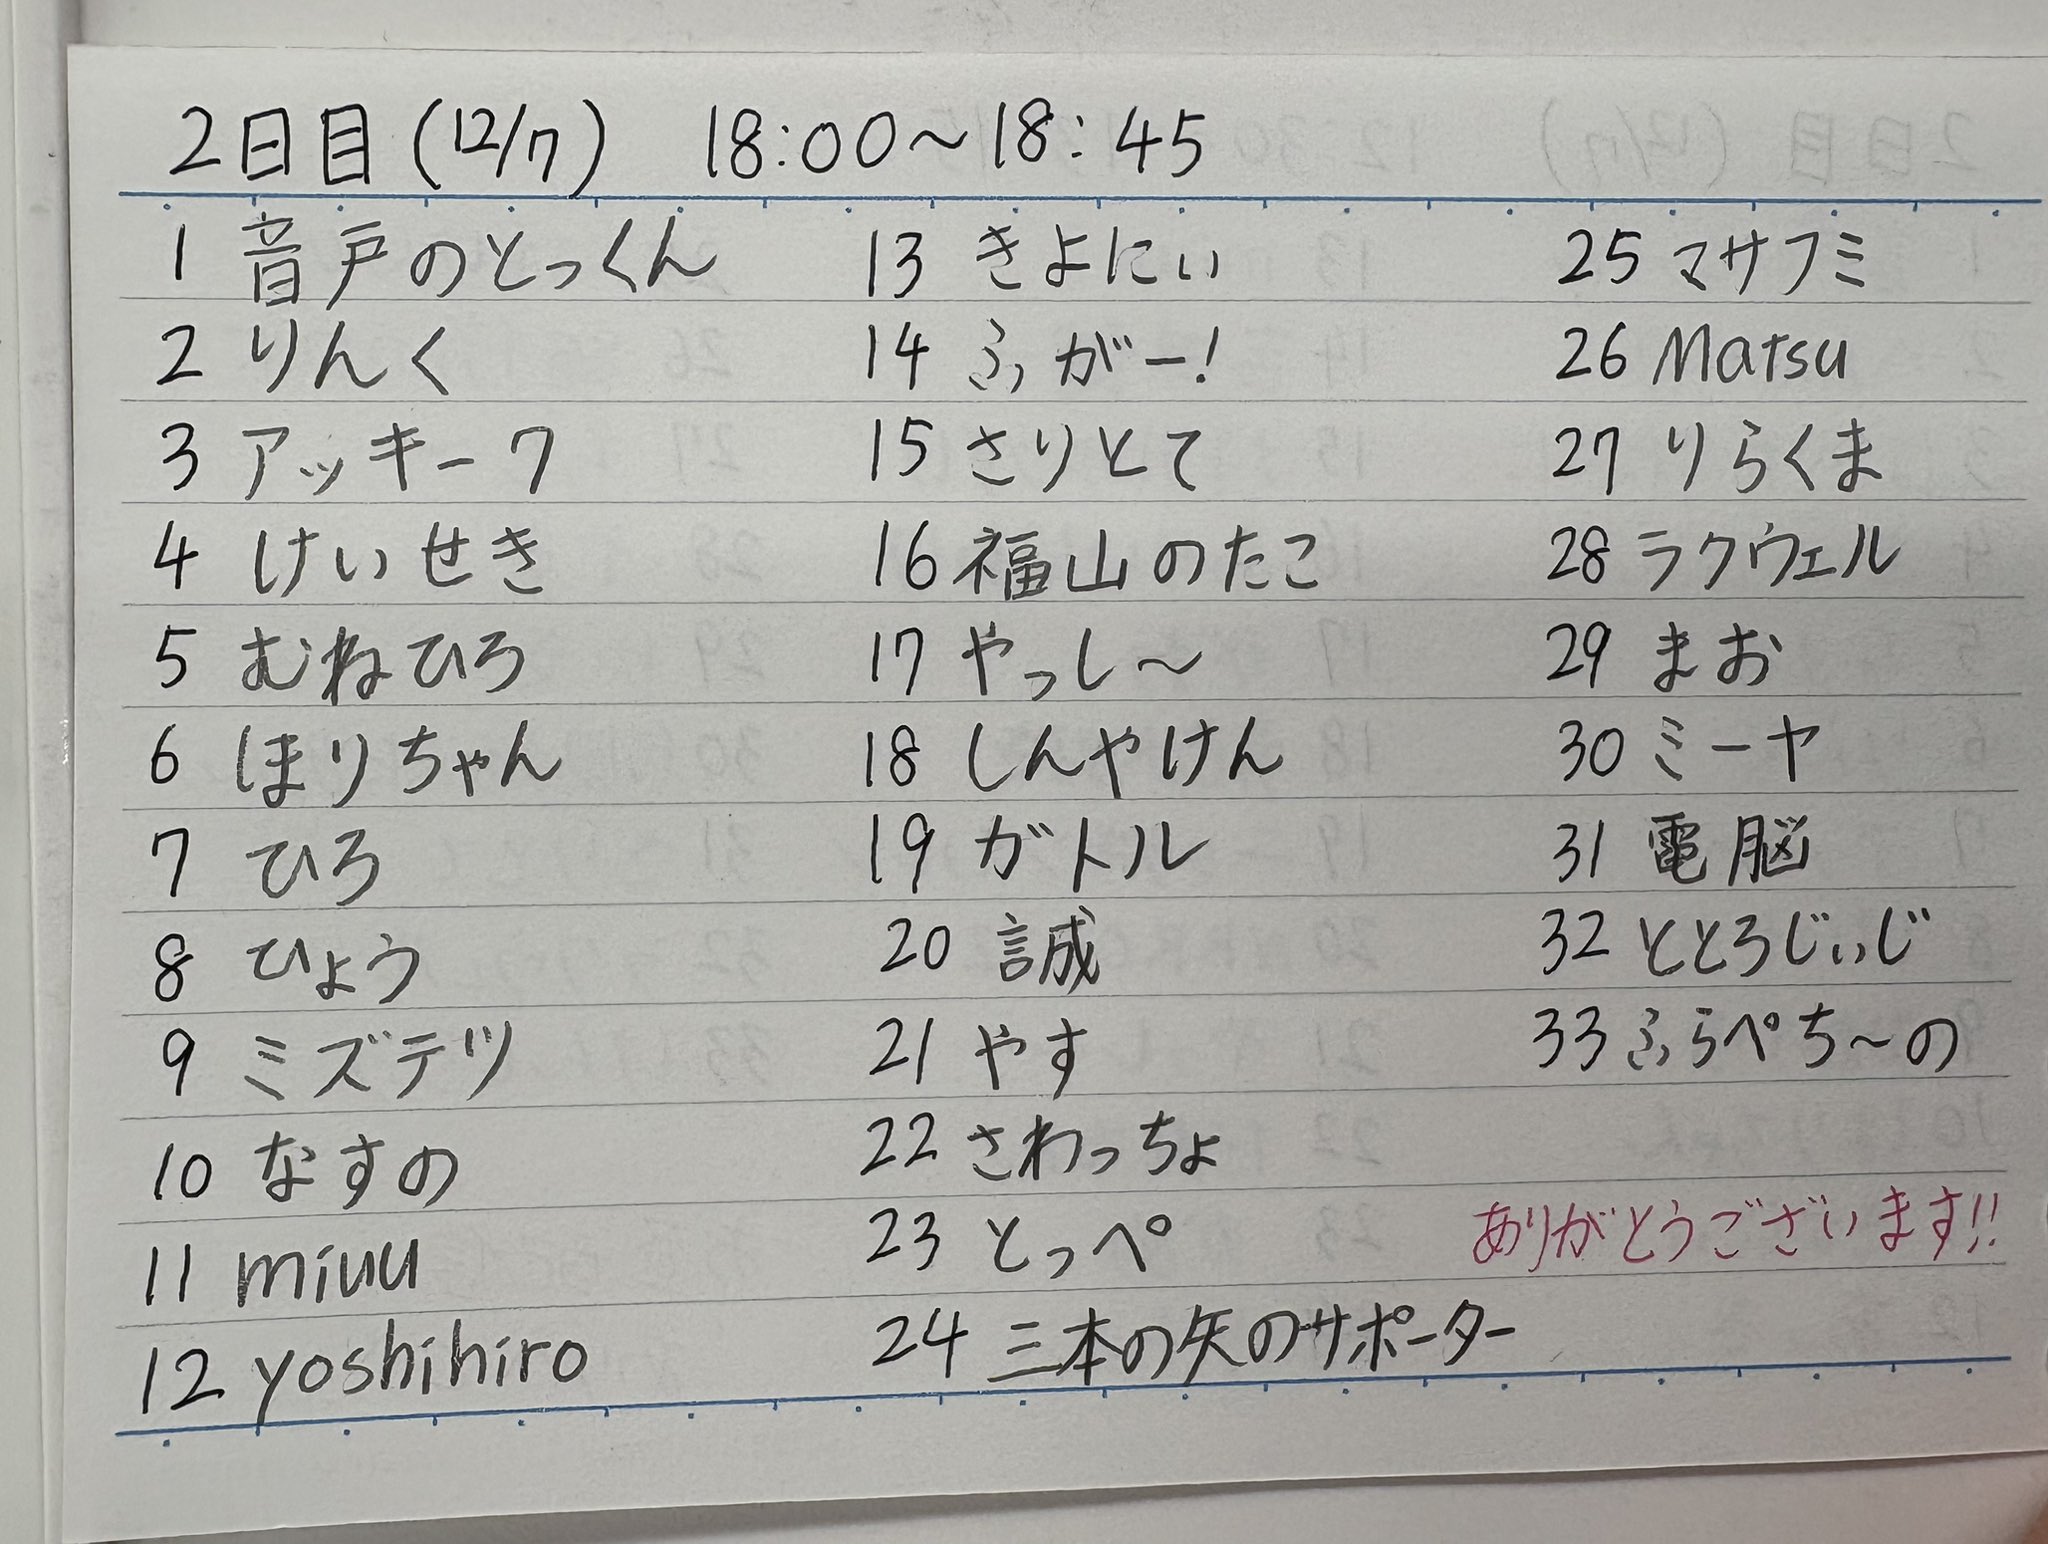 2日目(12/7) 18:00～18:45
1 音戸のとっくん
2 りんく
3 アッキー7
4 けいせき
5 むねひろ
6 ほりちゃん
7 ひろ
8 ひょう
9 ミズテツ
10 なすの
11 miuu
12 yoshihiro
13 きよにぃ
14 ふがー!
15 さりとて
16 福山のたこ
17 やっし～
18 しんやけん
19 ガトル
20 誠
21 やす
22 さわっちょ
23 とっぺ
24 三本の矢のサポーター
25 マサフミ
26 Matsu
27 りらくま
28 ラクウェル
29 まお
30 ミーヤ
31 電脳
32 ととろじぃじ
33 ふらぺち～の
ありがとうございます!!